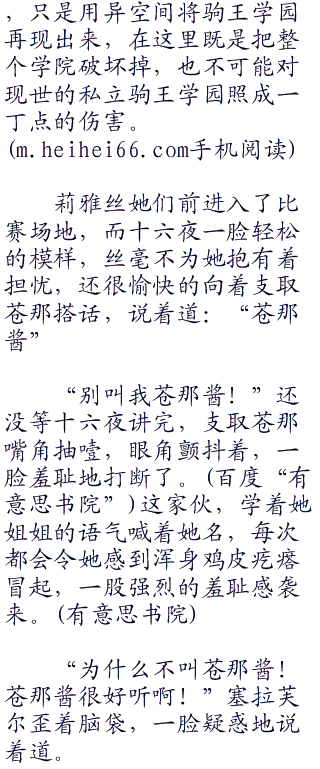 ，只是用异空间将驹王学园
再现出来，在这里既是把整
个学院破坏掉，也不可能对
现世的私立驹王学园照成一
丁点的伤害。
(m.heihei66.com手机阅读)
莉雅丝她们前进入了比
赛场地，而十六夜一脸轻松
的模样，丝毫不为她抱有着
担忧，还很愉快的向着支取
苍那搭话，说着道：“苍那
酱”
“别叫我苍那酱！”还
没等十六夜讲完，支取苍那
嘴角抽噎，眼角颤抖着，一
脸羞耻地打断了。(百度“有
意思书院”)这家伙，学着她
姐姐的语气喊着她名，每次
都会令她感到浑身鸡皮疙瘩
冒起，一股强烈的羞耻感袭
来。(有意思书院)
“为什么不叫苍那酱！
苍那酱很好听啊！”塞拉芙
尔歪着脑袋，一脸疑惑地说
着道。